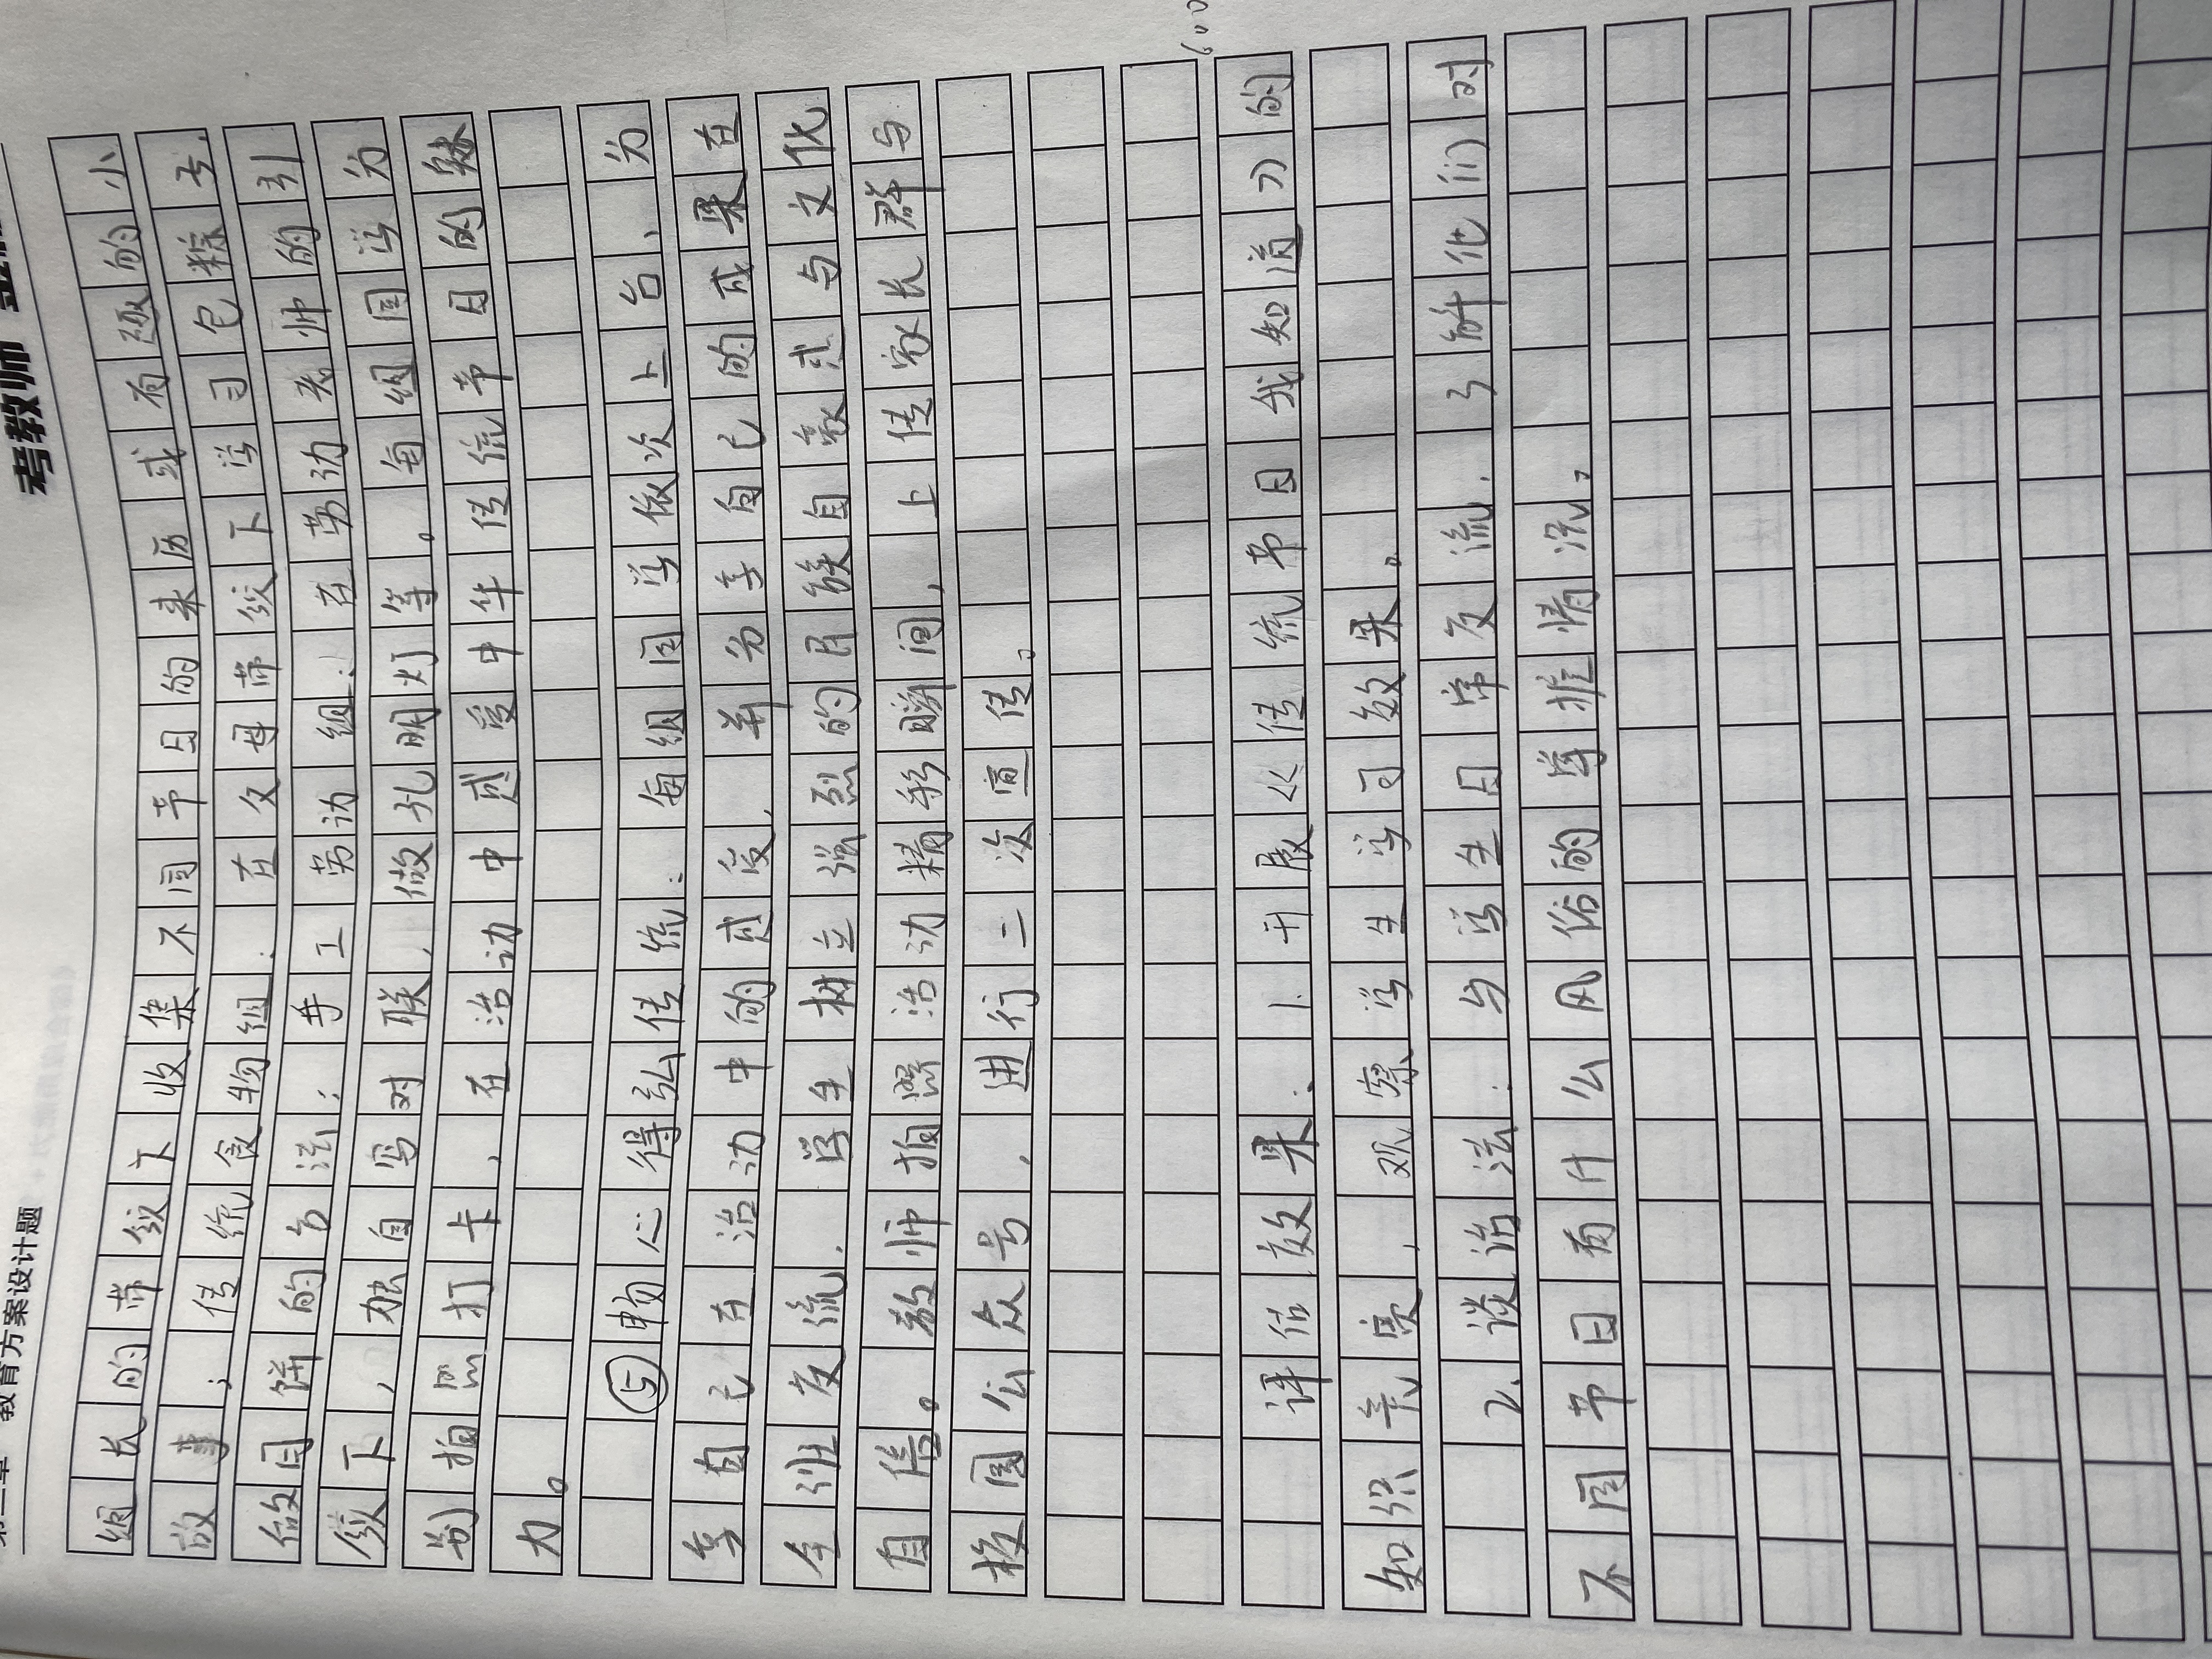 考教师
教育方案设计题
600
组长的带领下收集不同节日的来历或有趣的小
故事；传统食物组：在父母带领下学习包粽子、
做月饼的方法；手工劳动组：在劳动老师的引
领下，独自写对联、做孔明灯等。每组同学分
别拍照打卡，在活动中感受中华传统节日的魅
力。
⑤畅心得弘传统：每组同学依次上台、分
享自己在活动中的感受，并分享自己的成果在
全班交流，学生树立强烈的民族自豪感与文化
自信。教师拍照活动精彩瞬间，上传家长群与
校园公众号，进行二次宣传。
评估效果：1.开展《传统节日我知道》的
知识竞赛，观察学生学习效果。
2.谈话法：与学生日常交流，了解他们对
不同节日有什么风俗的掌握情况。